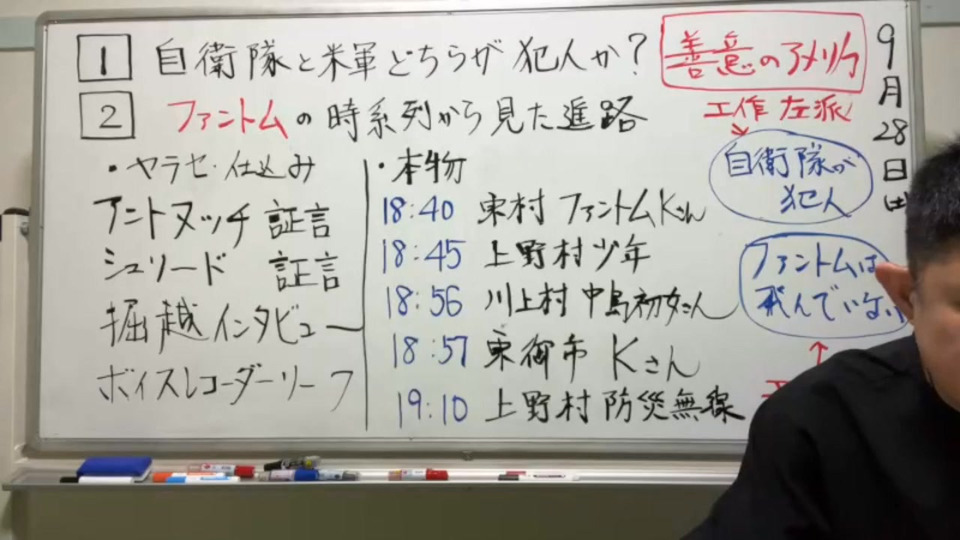 1 自衛隊と米軍どちらが犯人か?
2 ファントムの時系列から見た進路
・ヤラセ・仕込み
アントヌッチ 証言
シュリード 証言
堀越インタビュー
ボイスレコーダーリーフ
・本物
18:40 東村 ファントムKさん
18:45 上野村少年
18:56 川上村 中島初女さん
18:57 東御市 Kさん
19:10 上野村防災無線
善意のアメリカ
工作 左派
自衛隊が
犯人
ファントムは
飛んでいない
9月28日(土)